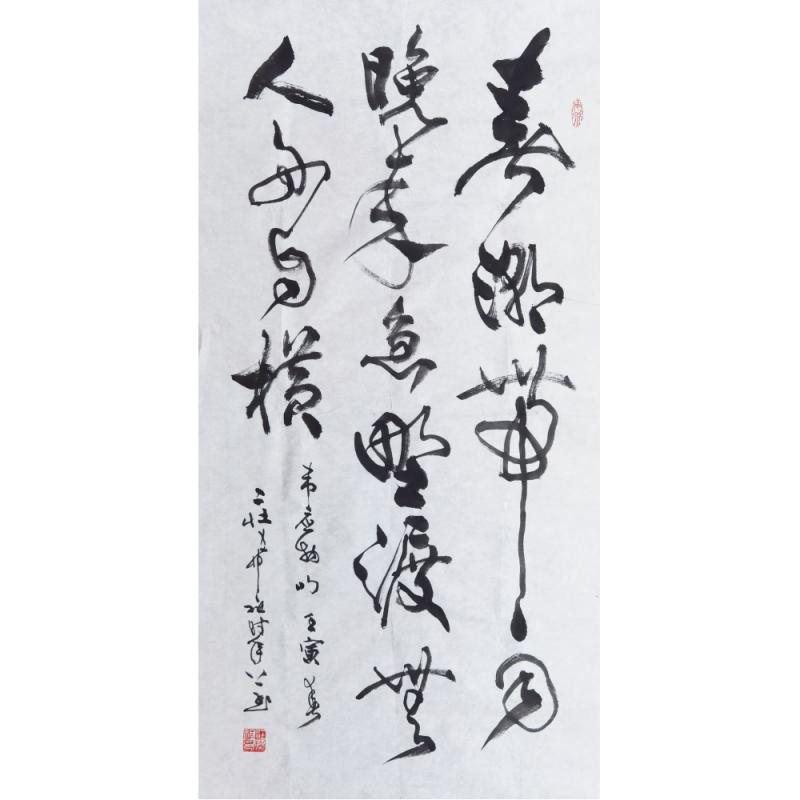 春潮帶雨
晚来急野渡無
人舟自横
韦应物 壬寅春